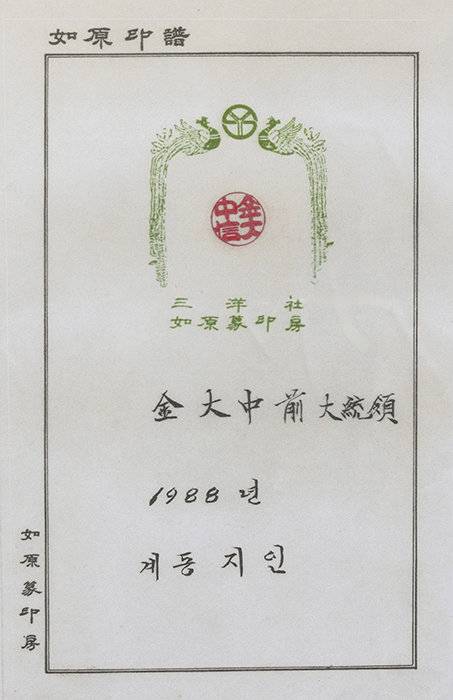 如原印譜
金大中信
三洋社
如原篆印房
金大中前大統領
1988년
계동지인
如原篆印房